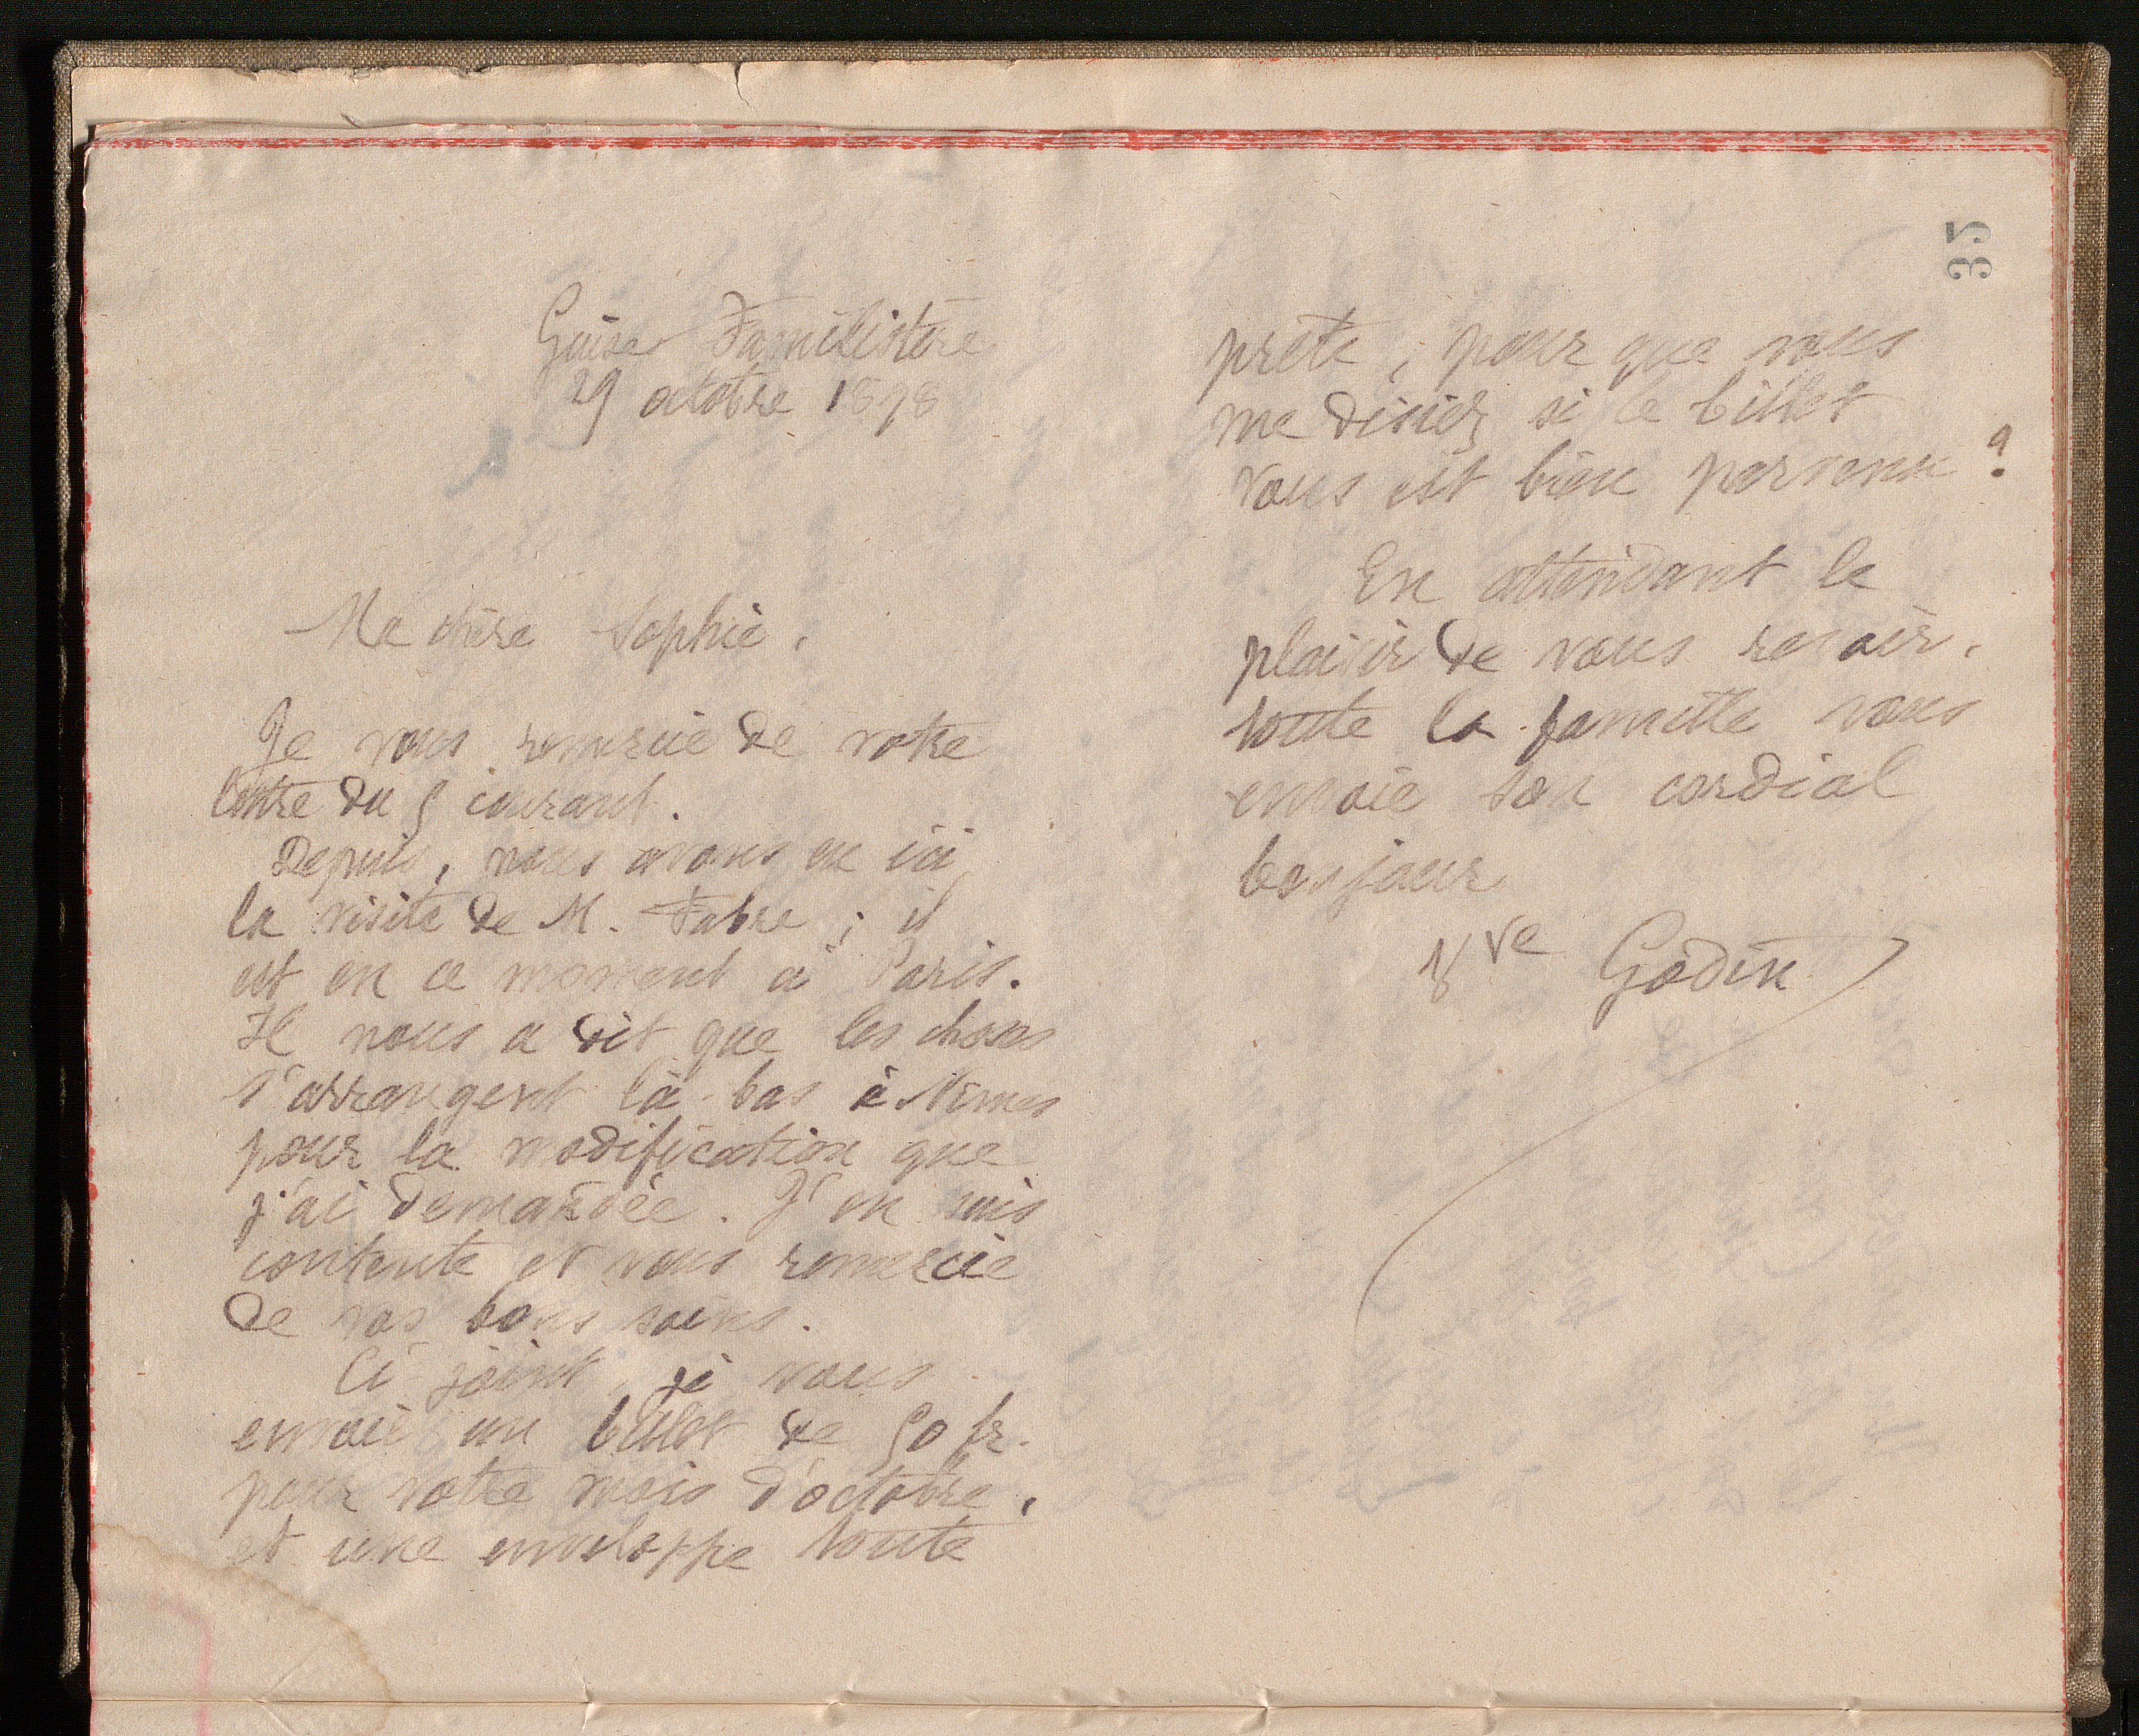 Guise Familistère
29 octobre 1898
Ma chère Sophie,
Je vous remercie de votre
lettre du 5 courant.
Depuis, nous avons eu ici
la visite de M. Fabre ; il
est en ce moment à Paris.
Il nous a dit que les choses
s'arrangent là-bas à Nimes
pour la modification que
j'ai demandée. J'en suis
contente et vous remercie
de vos bons soins.
Ci-joint, je vous
envoie un billet de 50 fr.
pour votre mois d'octobre,
et une enveloppe toute
35
prête, pour que vous
me disiez si le billet
vous est bien parvenu ?
En attendant le
plaisir de vous revoir,
toute la famille vous
envoie son cordial
bonjour
Vve Godin